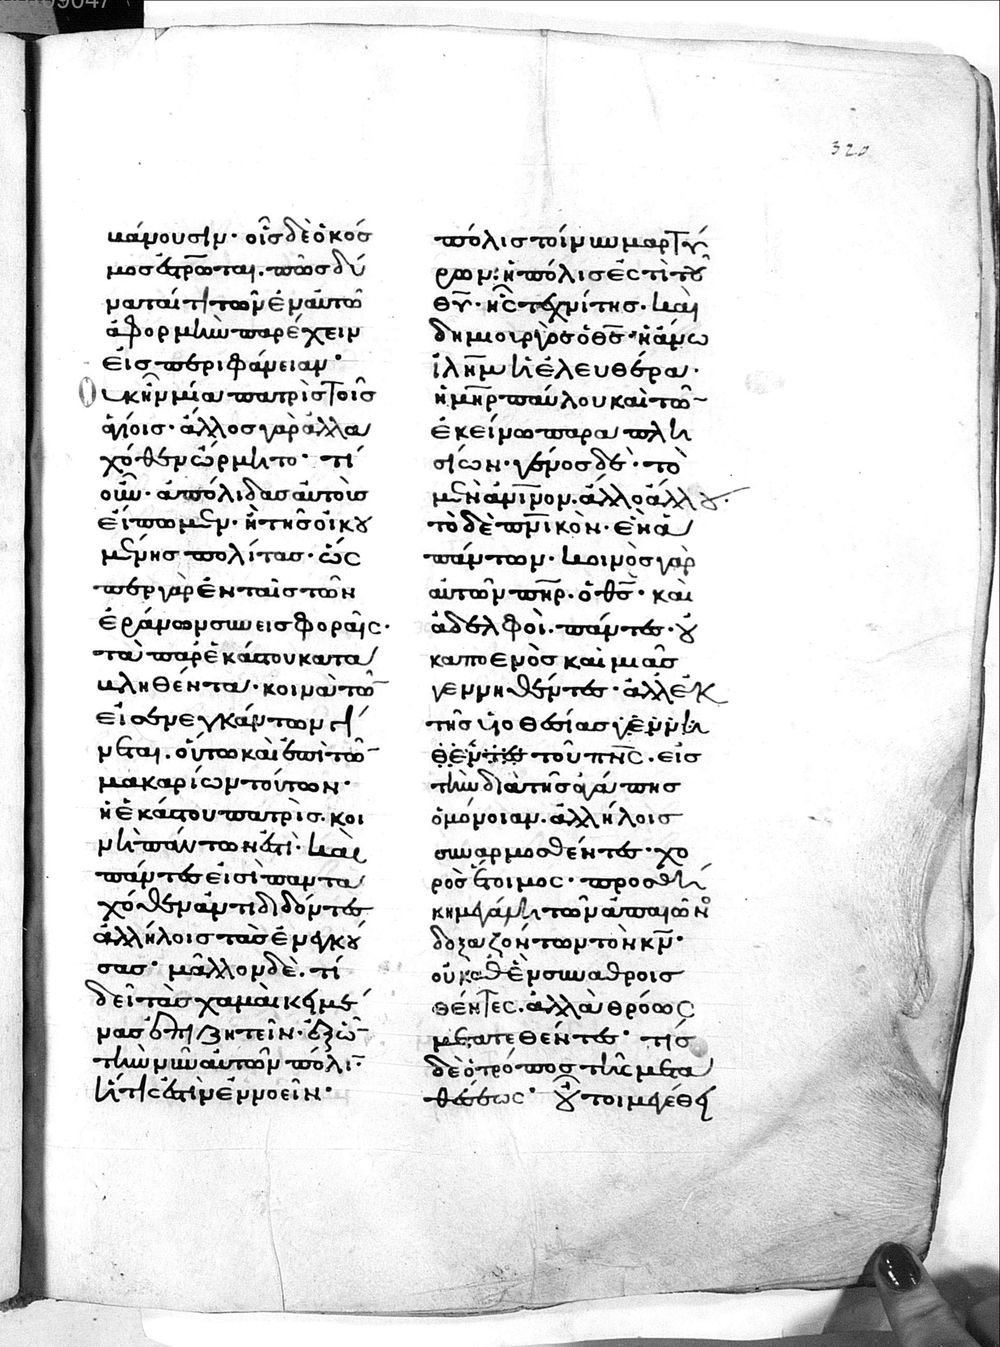 320
κάμουσιν· οἷς δὲ ὁ κόσ
μος ἐστρωται. πῶς δύ
ναταί τι τῶν ἐν αὐτῶ
ἀφορμὴν παρέχειν
εἰς περιφάνειαν·
Οὐκ ἦν μία πατρὶς τοῖς
ἁγίοις· ἄλλος γὰρ ἀλλα
χόθεν ὥρμητο· τί
οὖν· ἀπόλιδας αὐτοὺς
εἴπωμεν· ἢ τῆς οἰκου
μένης πολίτας· ὥσ
περ γὰρ ἐν ταῖς τῶν
ἐράνων συνεισφοραῖς·
τὰ παρ ἑκάστου κατα
βληθέντα· κοινὰ τῶ
εἰσενεγκάντων γί
νεται. οὕτω καὶ ἐπὶ τῶ
μακαρίων τούτων·
ἡ ἑκάστου πατρὶς· κοι
νὴ πάντων ἐστὶ· καὶ
πάντες εἰσὶ παντα
χόθεν ἀντιδιδόντες
ἀλλήλοις τὰς ἐνεγκού
σας· μᾶλλον δὲ. τί
δεῖ τὰς χαμαὶ κειμέ
νας ἐπιζητεῖν· ἐξὸν
τὴν νῦν αὐτῶν πόλιν
ἥτις ἐστὶν ἐννοεῖν·
πόλις τοίνυν μαρτύ
ρων· ἡ πόλις ἐστὶ τοῦ
θυ· ἧς τεχνίτης· καὶ
δημιουργὸς ὁ θς· ἡ ἄνω
ἱλημ ἡ ἐλευθέρα·
ἡ μηρ παύλου καὶ τῶ
ἐκείνω παραπλη
σίων· γένος δὲ· τὸ
μὲν ἀνινον. ἄλλο ἄλλου·
τὸ δὲ πνικὸν· ἓν ἁ
πάντων· κοινὸς γὰρ
αὐτῶν πηρ. ὁ θς· καὶ
ἀδελφοὶ· πάντες· οὐ
κ απο ενὸς καὶ μιᾶς
γεννηθέντες· ἀλλ ἐκ
τῆς υἱοθεσίας γεννη
θέντες τοῦ πνς. εἰς
τὴν διὰ τῆς ἀγάπης
ὁμόνοιαν. ἀλλήλοις
συναρμοσθέντες· χο
ρὸς ἕτοιμος· προσθή
κη μεγάλη τῶν ἀπ αἰῶνο
δοξαζόντων τὸν κν·
οὐ καθ ἓν συναθροισ
θέντες. ἀλλ ἀθρόως
μετατεθέντες· τίς
δὲ ὁ τρόπος τῆς μετα
θέσεως· οὗτοι μεγέθει